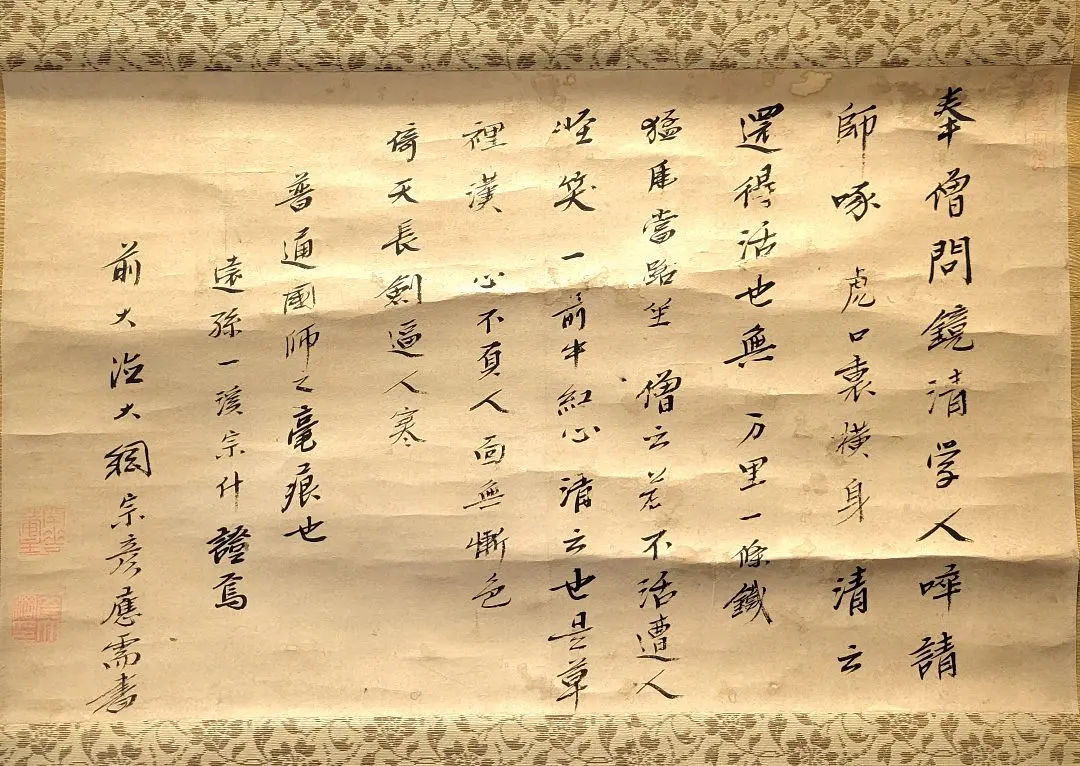 奉僧問鏡清学人啐請
師啄 虎口裏横身 清云
還得活也無 万里一條鐵
猛虎當路坐 僧云若不活遭人
恠笑 一箭中紅心 清云也是草
裡漢 心不負人面無慚色
倚天長劍逼人寒
普通國師之毫痕也
遠孫一溪宗什證焉
前大德大綱宗彦應需書